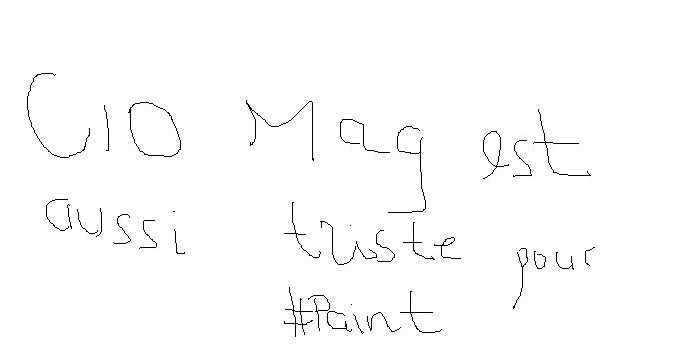 CIO Mag est
aussi triste pour
#Paint